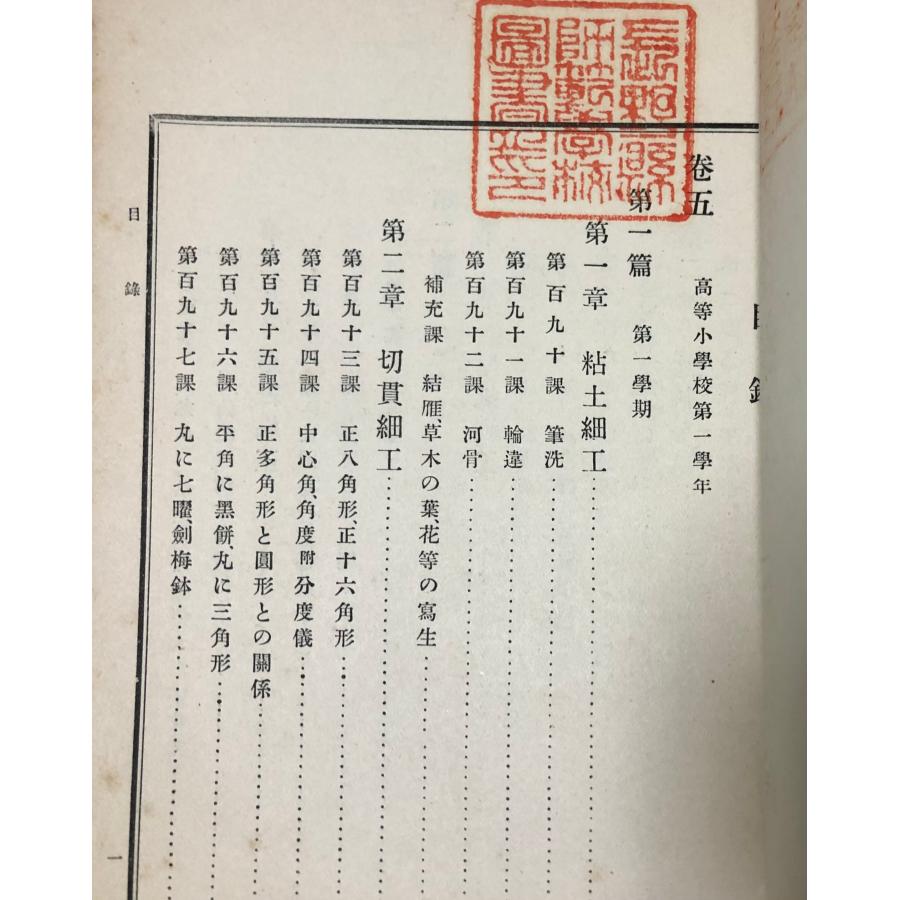 師範學校
目錄
卷五　高等小學校第一學年
第一篇　第一學期
第一章　粘土細工
第百九十課　筆洗
第百九十一課　輪違
第百九十二課　河骨
補充課　結雁、草木の葉、花等の寫生
第二章　切貫細工
第百九十三課　正八角形、正十六角形
第百九十四課　中心角、角度附分度儀
第百九十五課　正多角形と圓形との關係
第百九十六課　平角に黑餅、丸に三角形
第百九十七課　丸に七曜、劍梅鉢
目錄
一